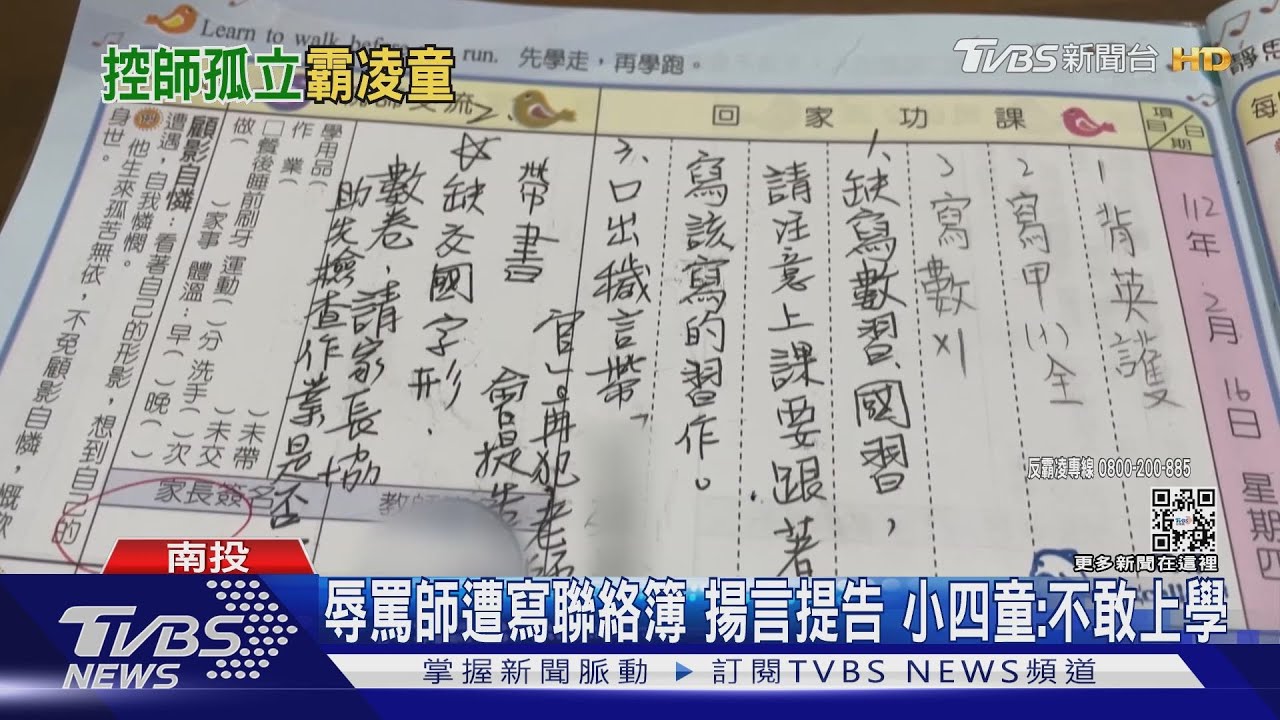 Learn to walk before run. 先學走，再學跑。
TVBS新聞台 HD
控師孤立霸凌童
項目
日期
112年 2月 16日 星期四
回家功課
1 背英護
2 寫甲(1)全
3 寫數x1
1、缺寫數習、國習，
請注意上課要跟著
寫該寫的習作。
3、口出穢言幣「
官」。再犯老師
會提告
2.
帶書
☆缺交國字形.
數卷、請家長協
助先檢查作業是否
交流
學用品( )未帶
作業( )未交
□餐後睡前刷牙 運動( )分 洗手( )次
做( )家事 體溫：早( )晚( )
家長簽名
教師
顧影自憐：看著自己的形影，想到自己的
遭遇，自我憐憫。
例 他生來孤苦無依，不免顧影自憐，慨歎
身世。
靜思
每
反霸凌專線 0800-200-885
更多新聞在這裡
南投
TVBS NEWS
辱罵師遭寫聯絡簿 揚言提告 小四童:不敢上學
掌握新聞脈動 ▶ 訂閱TVBS NEWS頻道